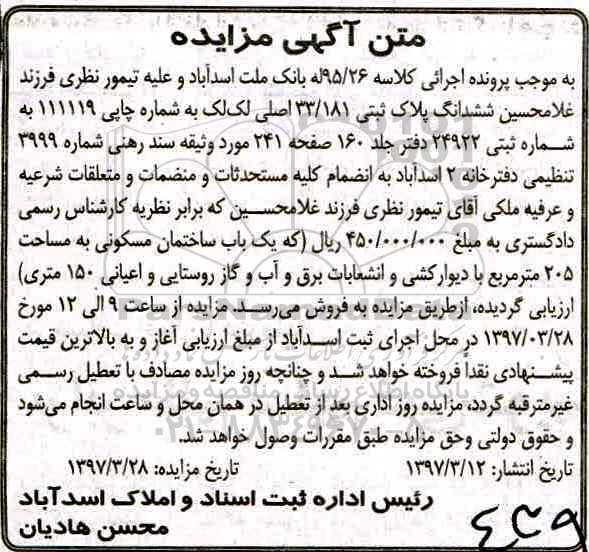 متن آگهی مزایده
به موجب پرونده اجرائی کلاسه ۹۵/۲۶له بانک ملت اسدآباد و علیه تیمور نظری فرزند
غلامحسین ششدانگ پلاک ثبتی ۳۳/۱۸۱ اصلی لک‌لک به شماره چاپی ۱۱۱۱۱۹ به
شماره ثبتی ۲۴۹۲۲ دفتر جلد ۱۶۰ صفحه ۲۴۱ مورد وثیقه سند رهنی شماره ۳۹۹۹
تنظیمی دفترخانه ۲ اسدآباد به انضمام کلیه مستحدثات و منضمات و متعلقات شرعیه
و عرفیه ملکی آقای تیمور نظری فرزند غلامحسین که برابر نظریه کارشناس رسمی
دادگستری به مبلغ ۴۵۰/۰۰۰/۰۰۰ ریال (که یک باب ساختمان مسکونی به مساحت
۲۰۵ مترمربع با دیوارکشی و انشعابات برق و آب و گاز روستایی و اعیانی ۱۵۰ متری)
ارزیابی گردیده، ازطریق مزایده به فروش می‌رسد. مزایده از ساعت ۹ الی ۱۲ مورخ
۱۳۹۷/۰۳/۲۸ در محل اجرای ثبت اسدآباد از مبلغ ارزیابی آغاز و به بالاترین قیمت
پیشنهادی نقداً فروخته خواهد شد و چنانچه روز مزایده مصادف با تعطیل رسمی
غیرمترقبه گردد، مزایده روز اداری بعد از تعطیل در همان محل و ساعت انجام می‌شود
و حقوق دولتی وحق مزایده طبق مقررات وصول خواهد شد.
تاریخ انتشار: ۱۳۹۷/۳/۱۲ تاریخ مزایده: ۱۳۹۷/۳/۲۸
رئیس اداره ثبت اسناد و املاک اسدآباد
محسن هادیان